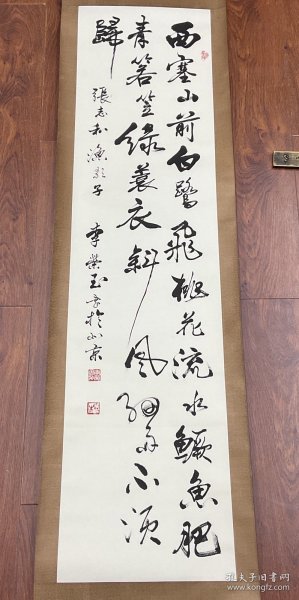 西塞山前白鷺飛桃花流水鱖魚肥
青箬笠綠蓑衣斜風細雨不須
歸
張志和漁歌子
李榮玉書於北京
孔夫子旧书网
www.kongfz.com